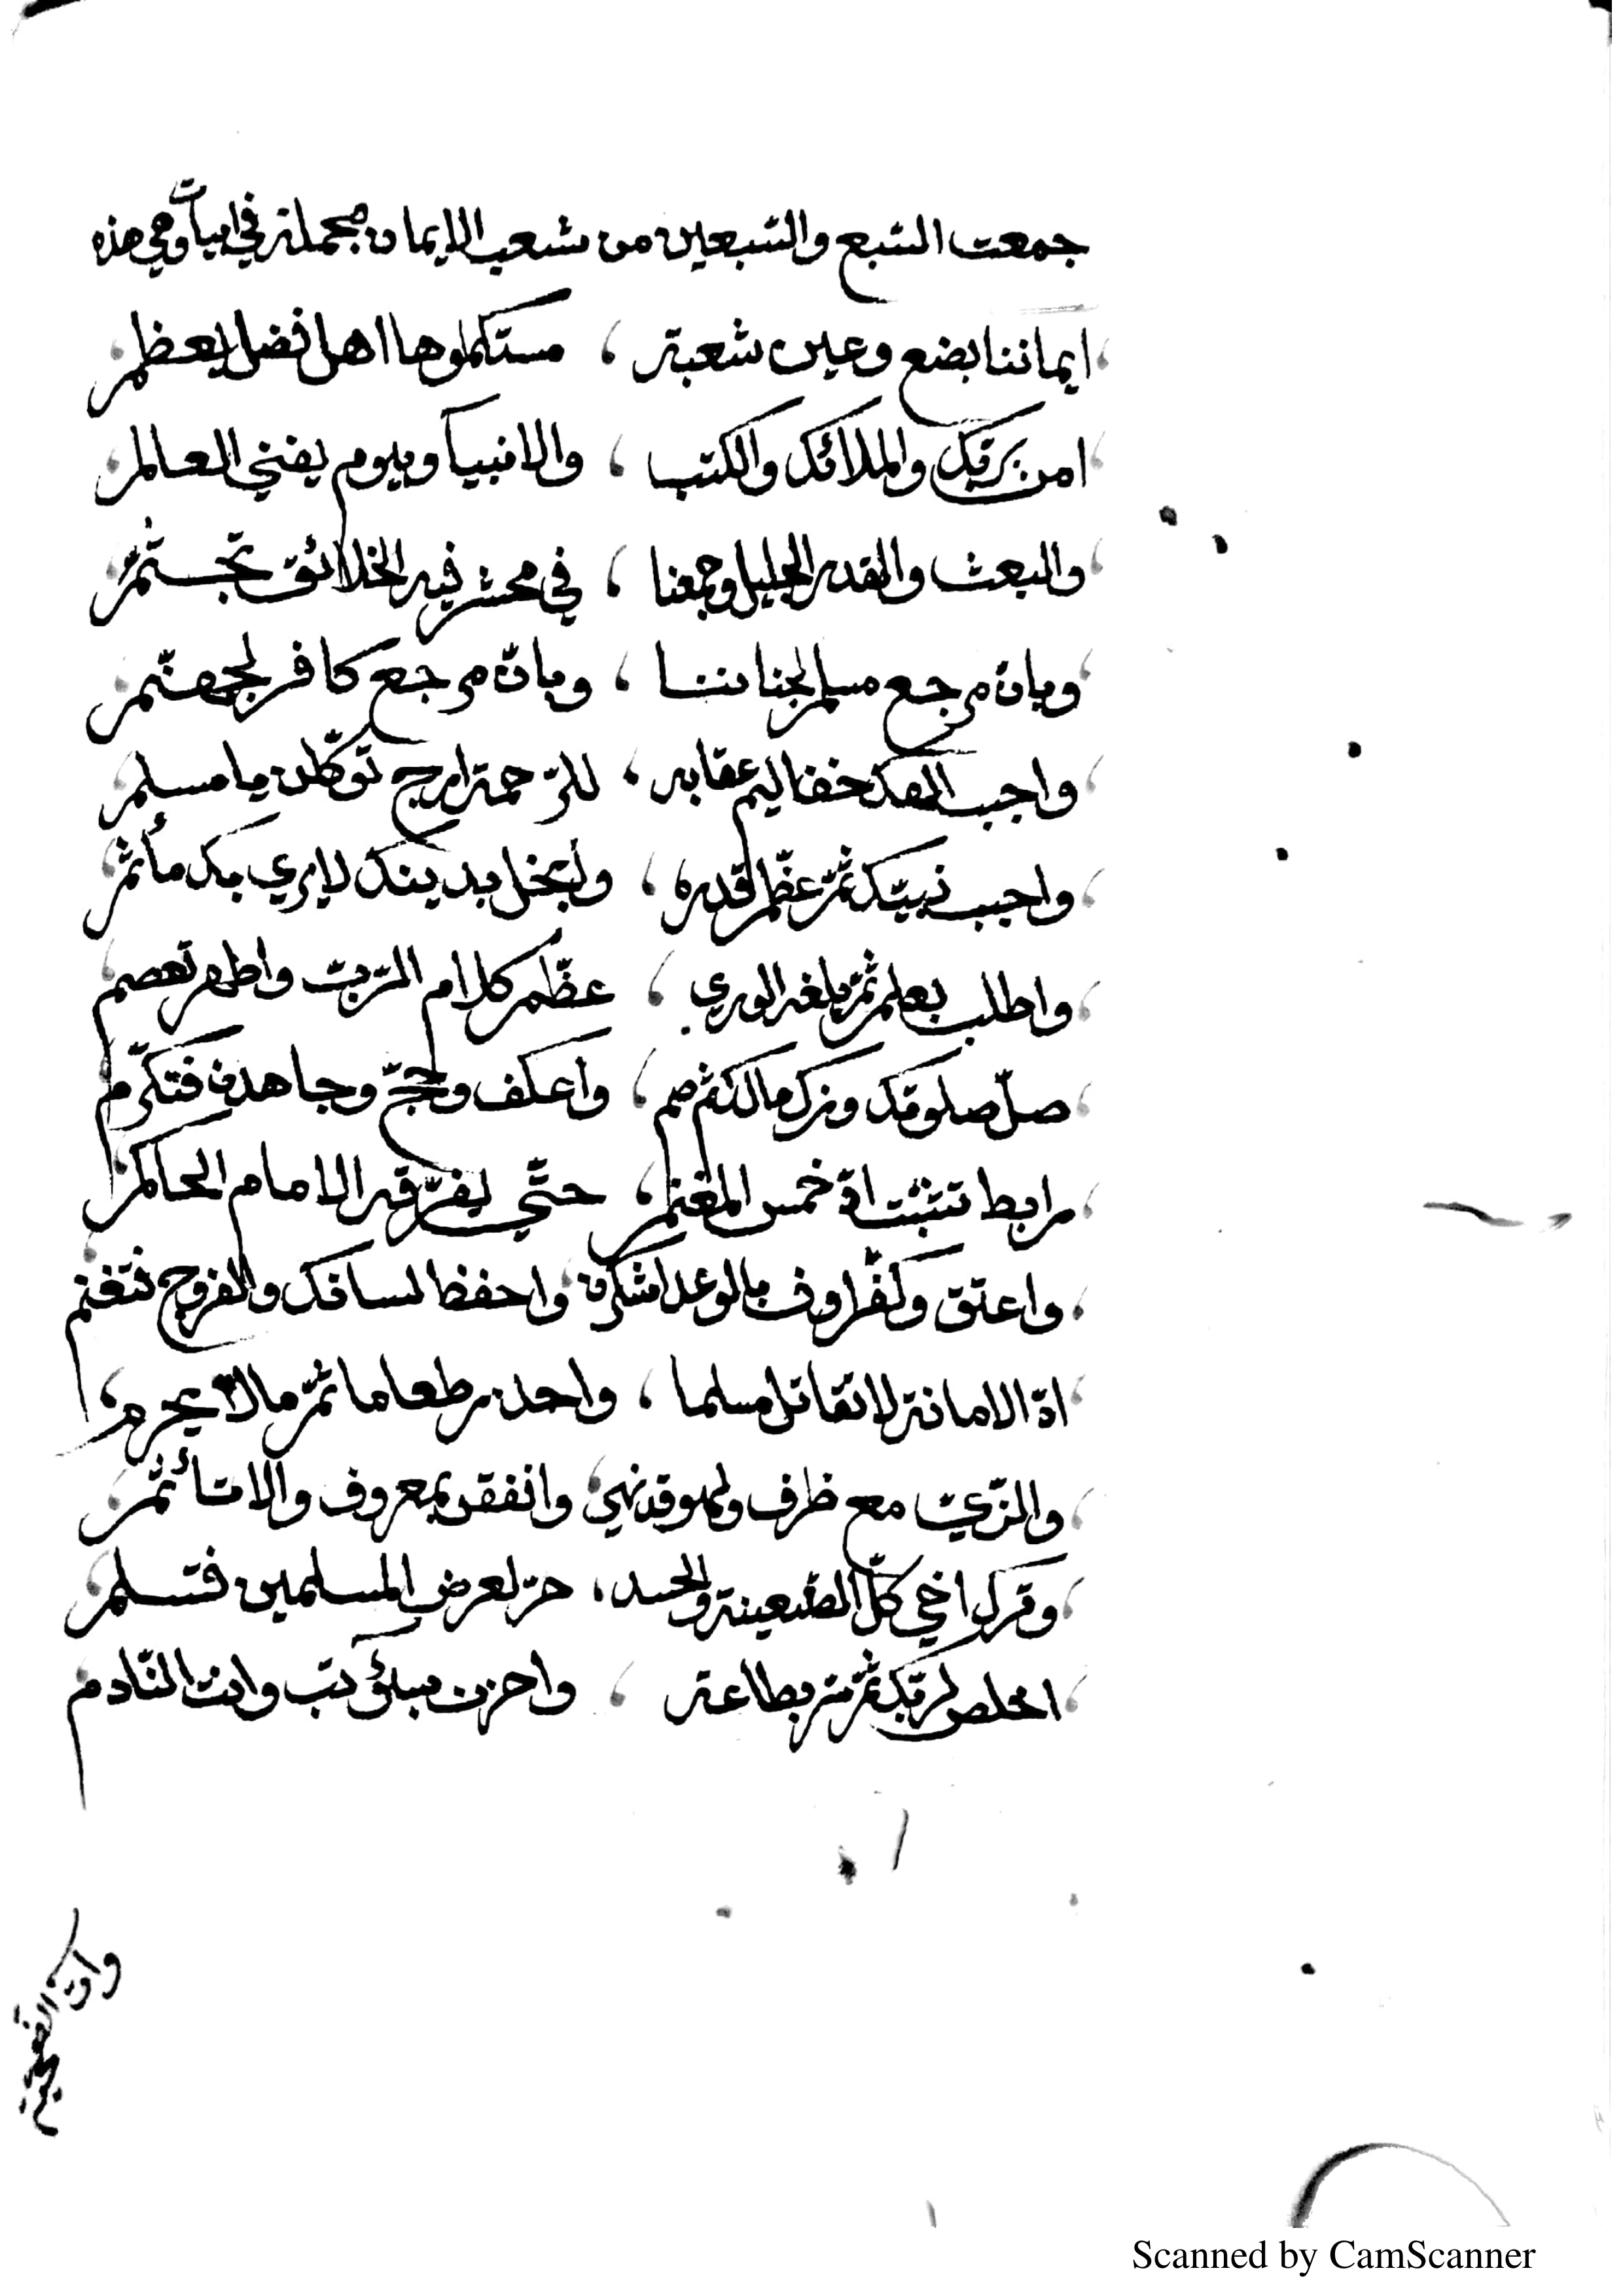 جمعت السّبع والسّبعين من شعب الايمان مجملة في ابيات وهي هذه
ايماننا بضع وعين شعبة ، مستكملوها اهل فضل يعظم
امن بربّك والملائك والكتب ، والانبيآ وبيوم يفني العالم
والبعث والقدر الجليل وجمعنا ، في محشر فيه الخلائق تجسثم
وبان مرجع مسلم لجناننا ، وبانّ مرجع كافر لجهنّم
واحبب الهك خف اليم عقابه ، للرّحمة ارج توكّلن يا مسلم
واحبب نبيّك ثمّ عظّم قدره ، وابخل بدينك لا يري بك مأثم
واطلب بعلم ثمّ بلغه الوري ، عظّم كلام الرّبّ واطهر تعصم
صلّ صلوتك وزك مالك ثم صم ، واعكف وحجّ وجاهدن فتكرّم
رابط تثبّت ادّ خمس المغنم ، حتّي يفرّقه الامام الحاكم
واعتق وكفّر اوف بالوعد اشكرن ، واحفظ لسانك والفروج فتغنم
ادّ الامانة لا تقاتل مسلما ، واحذر طعاما ثمّ مالا يحرم ،
والزّيّ مع ظرف ولهو قد نهي ، وانفقن بمعروف والا تأثم
وترك اخي كلّ الضّغينة والحسد ، حرّ لعرض المسلمين فتسلم
اخلص لربّك ثمّ سر بطاعة ، واحزن بسوء تب وانت النّادم
Scanned by CamScanner